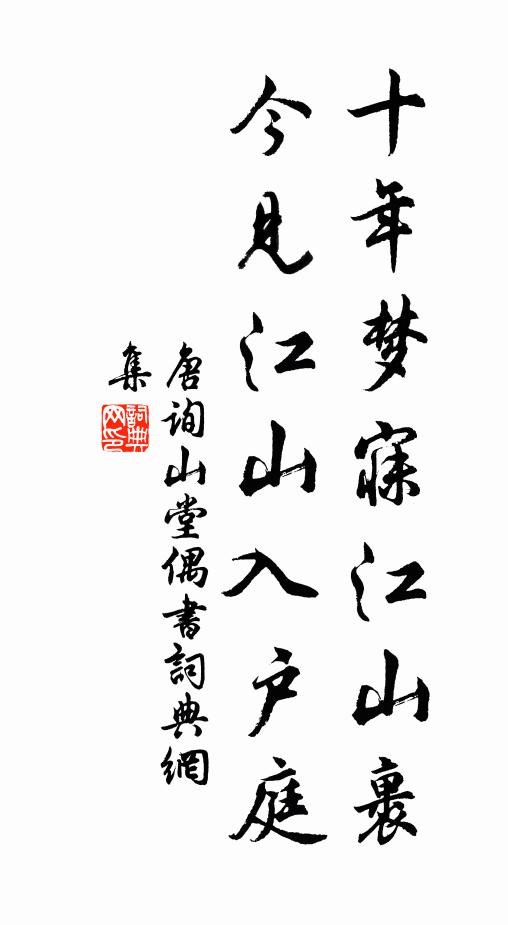 十年梦寐江山裏
今见江山入户庭
唐询山堂偶書詞典網
集
詞典
网印